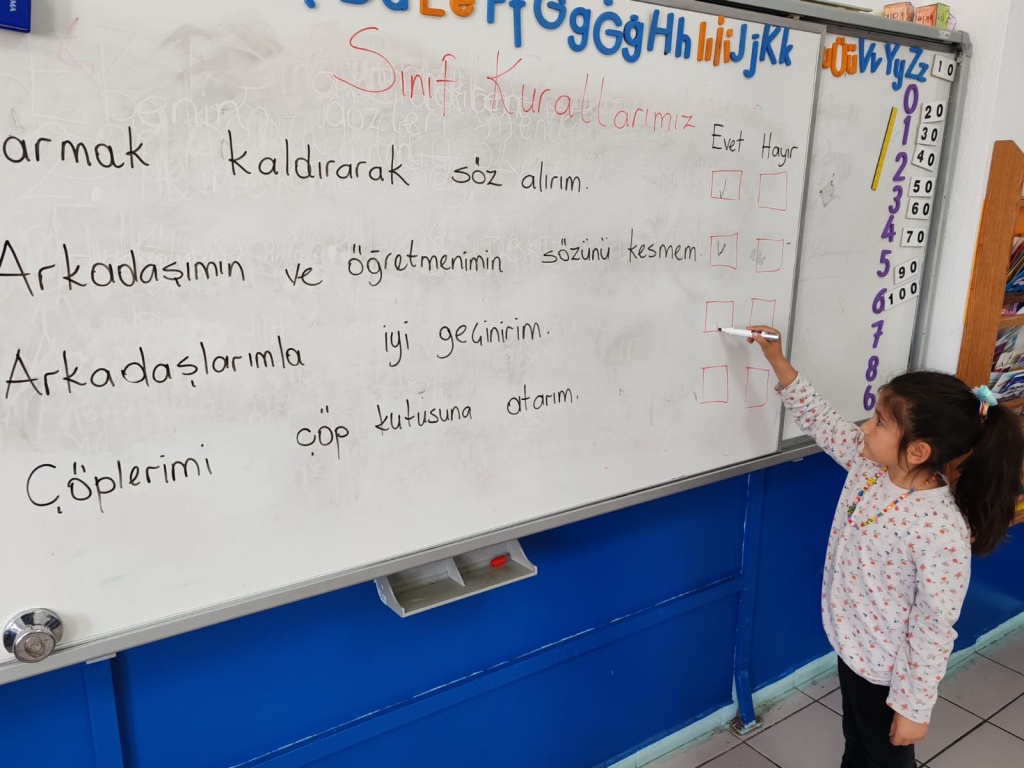 Ff Gg Ğğ Hh Iı İi Jj Kk
Üü Vv Yy Zz
Sınıf Kurallarımız
Evet Hayır
armak kaldırarak söz alırım.
Arkadaşımın ve öğretmenimin sözünü kesmem.
Arkadaşlarımla iyi geçinirim.
Çöplerimi çöp kutusuna atarım.
0
1
2
3
4
5
6
7
8
10
20
30
40
50
60
70
90
100